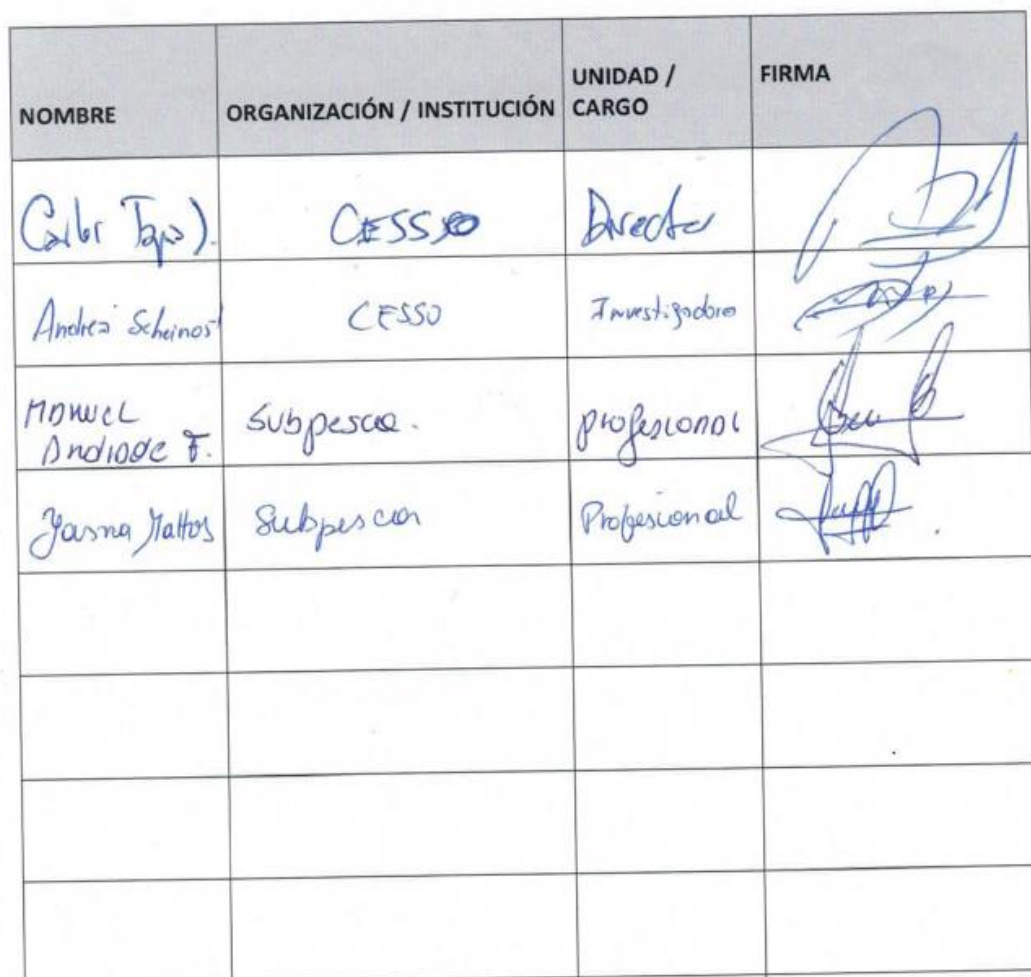 NOMBRE
ORGANIZACIÓN / INSTITUCIÓN
UNIDAD /
CARGO
FIRMA
CESSO
Director
Andrea Scheinost
CESSO
Investigadora
MANUEL
Andrade F.
Subpesca.
profesional
Yasna Mattos
Subpesca
Profesional